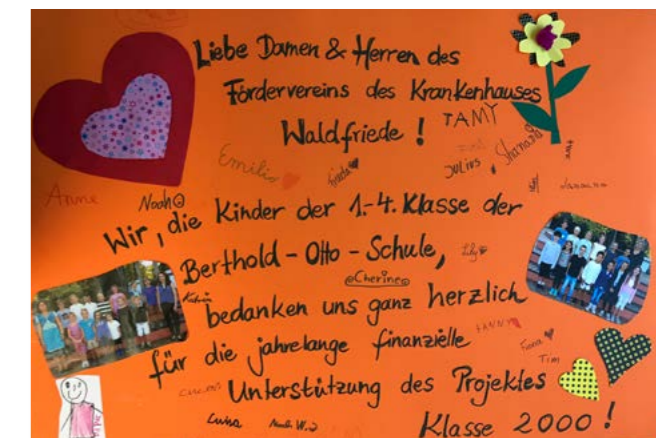 Liebe Damen & Herren des
Fördervereins des Krankenhauses
Waldfriede !
TAMY
Emilio
Julius
Shanaia
Anne
Noah
Wir, die Kinder der 1.-4. Klasse der
Berthold-Otto-Schule,
Lily
Cherine
bedanken uns ganz herzlich
für die jahrelange finanzielle
FANNY
Tim
Unterstützung des Projektes
Luisa
Noah W.
Klasse 2000 !